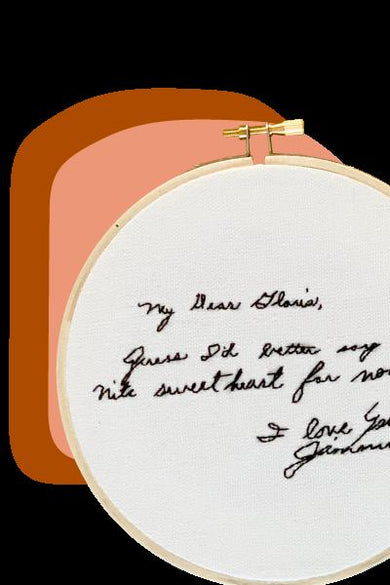 My Dear Gloria,
Guess I'd better say
Nite sweetheart for now
I love You